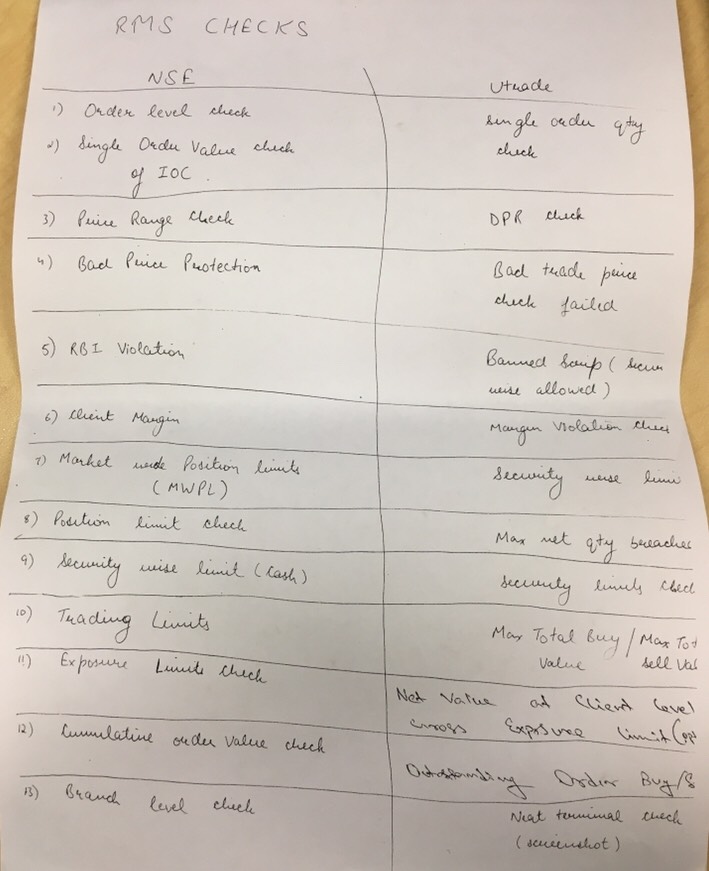 RMS CHECKS
NSE
Utrade
1) Order level check
single order qty
check
2) Single Order Value check
of IOC.
3) Price Range Check
DPR check
4) Bad Price Protection
Bad trade price
check failed
5) RBI Violation
Banned Scrip (
wise allowed)
6) Client Margin
Margin Violation Check
7) Market wide Position limits
(MWPL)
Security wise limi
8) Position limit check
Max net qty breaches
9) Security wise limit (Cash)
Security limits check
10) Trading Limits
Max Total Buy / Max Tot
value sell val
11) Exposure Limits Check
Net Value at Client level
cross Exposure limit
12) Cumulative order value check
Outstanding Order Buy/S
13) Branch level check
Neat terminal check
(screenshot)